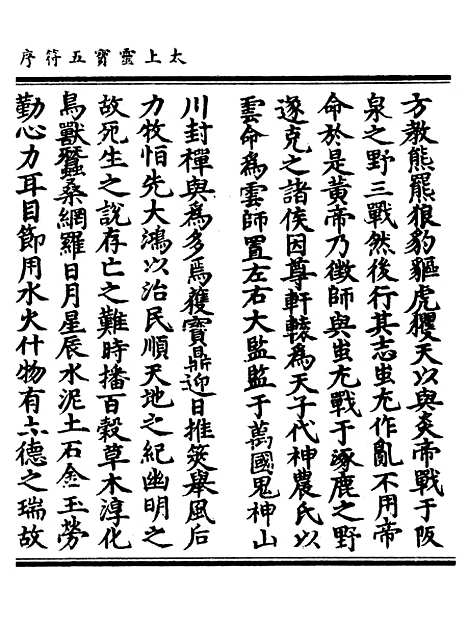 太上靈寳五符序
方教熊羆狼豹驅虎貔天以與炎帝戰于阪
泉之野三戰然後行其志蚩尤作亂不用帝
命於是黃帝乃徵師與蚩尤戰于涿鹿之野
遂克之諸侯因尊軒轅爲天子代神農氏以
雲命爲雲師置左右大監監于萬國鬼神山
川封禪與爲多焉獲寳鼎迎日推筴舉風后
力牧怕先大鴻以治民順天地之紀幽明之
故死生之說存亡之難時播百穀草木淳化
鳥獸蠶桑網羅日月星辰水泥土石金玉勞
勤心力耳目節用水火什物有六德之瑞故